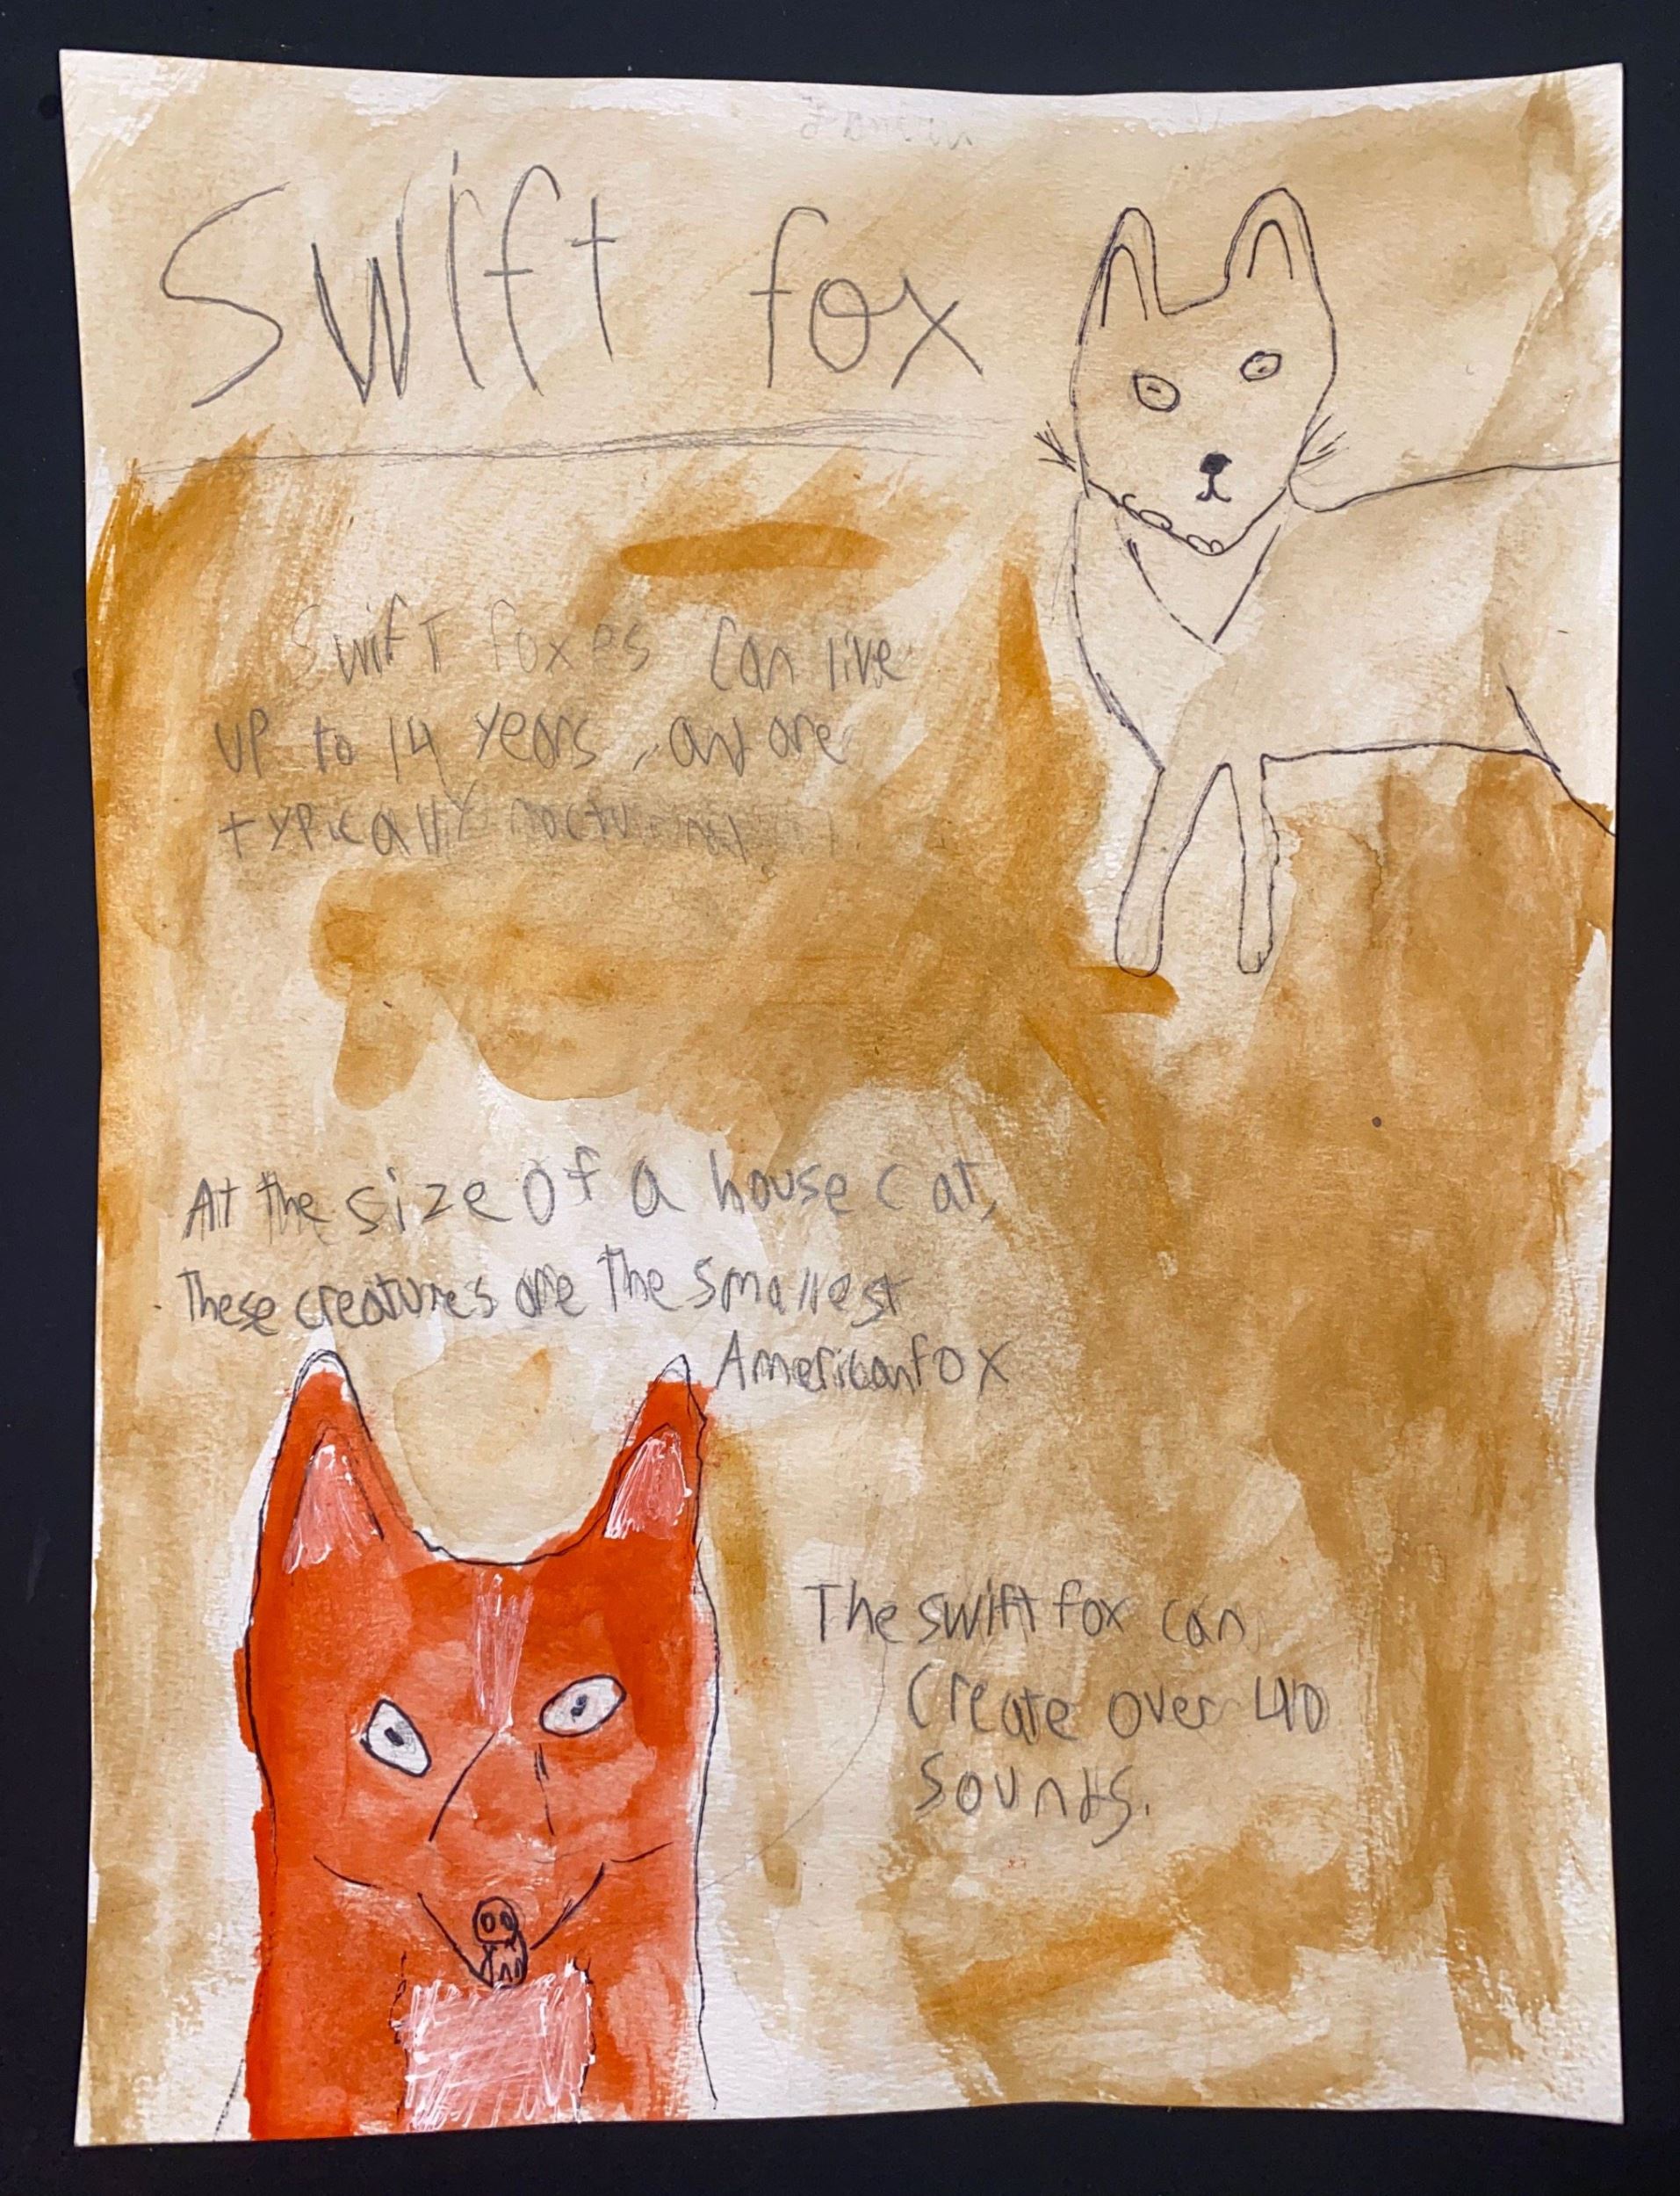 Swift fox
Swift foxes can live
up to 14 years, and are
typically nocturnal.
At the size of a house cat,
These creatures are the smallest
American fox
The swift fox can
create over 40
sounds.